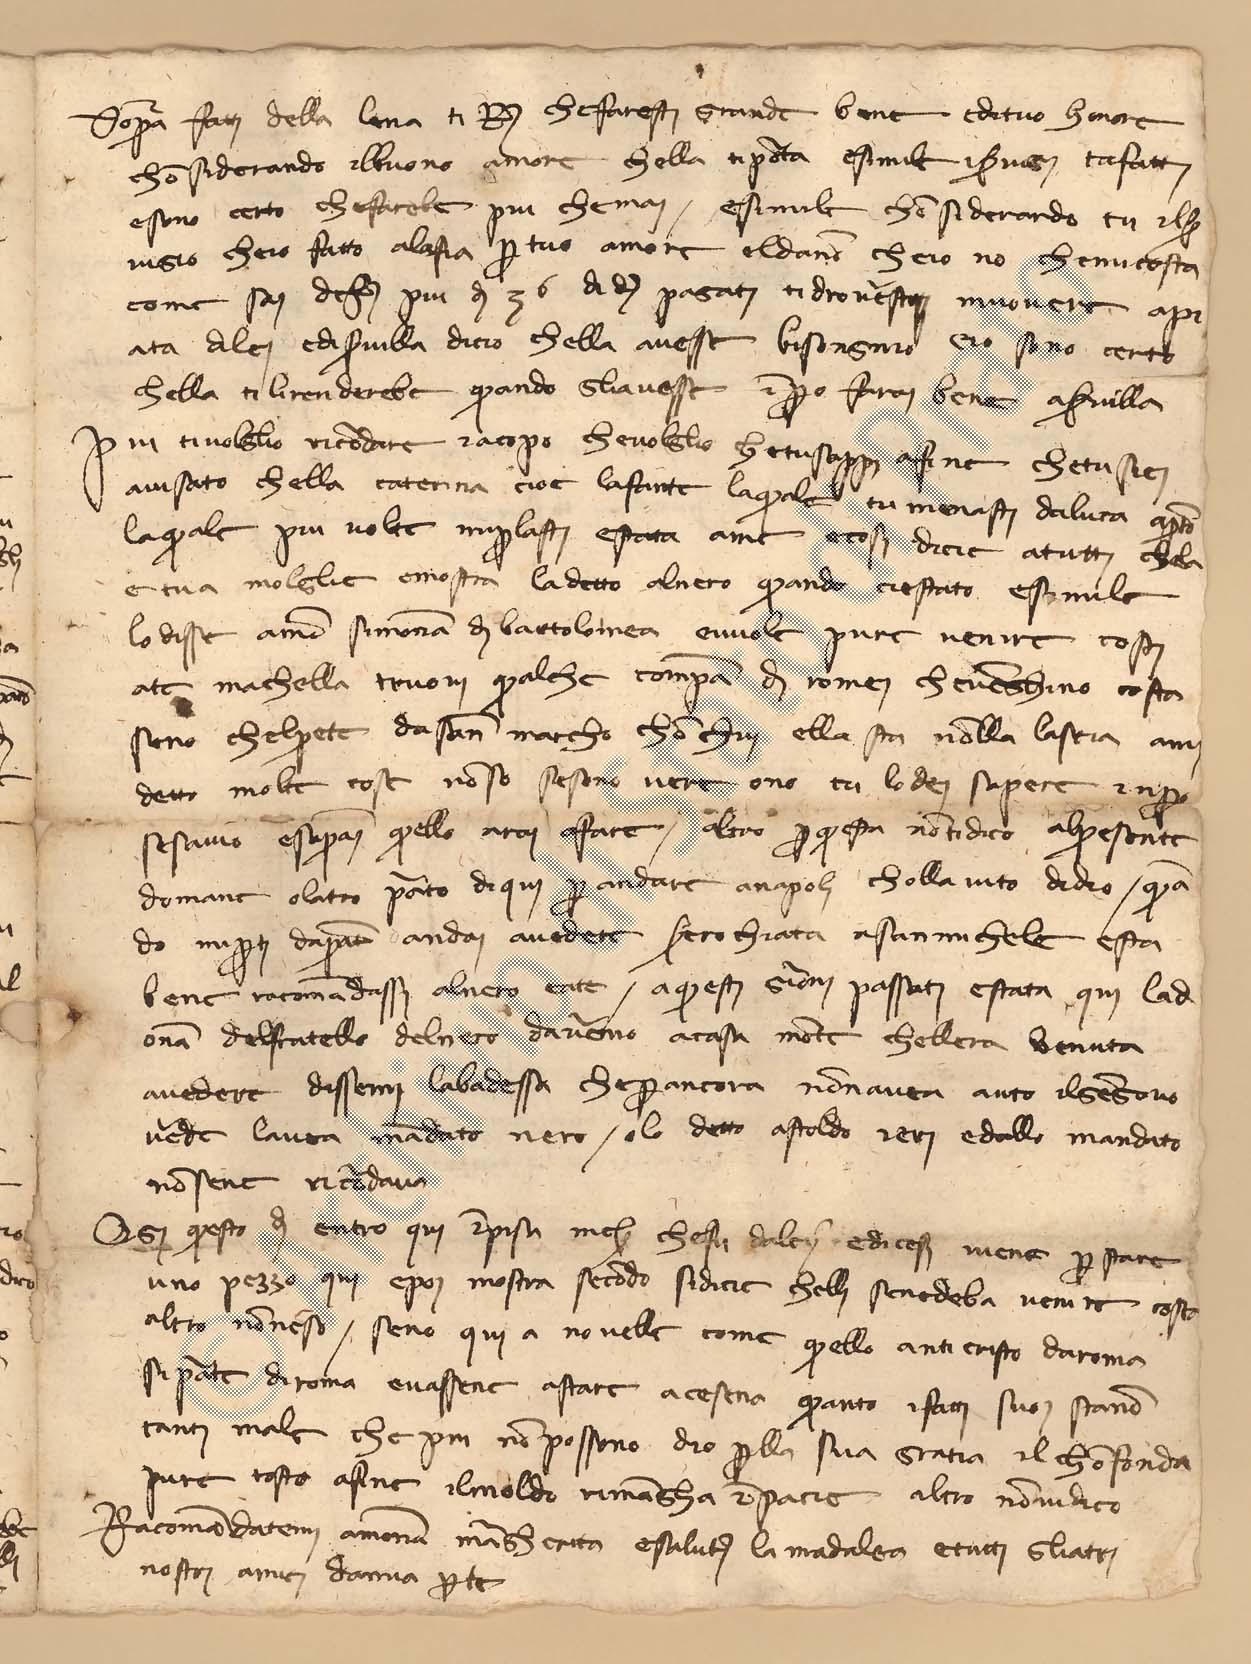 Sopra fatti della lena ti R che faresti grande bene e di tuo honore
chonsiderando il buono amore chella ti porta e simile i servigi ta fatti
e sono certo che farebe piu che mai / e simile chonsiderando tu il ser
vigio cheio fatto alasia per tuo amore el danno cheio no che mi costa
come sai di piu di 36 di di pagati ti dovresti muovere a pi
ata di lei e di servilla di cio chella avesse bisongnio e io sono certo
chella ti li renderebe quando gli avesse in pero farai bene a servilla
Piu ti volglio ricordare iacopo che volglio che tu sappi a fine che tu sei
avisato chella caterina cioe la fante la quale tu menasti da luca a porto
la quale piu volte mi parlasti e stata a me e cosi dicie a tutti chela
e tua molglie e mostra la detto al nero quando ci e stato e simile
lo disse a mona simona di bartolomea e vuole pure venire costi
a te ma chella truovi qualche compa di romei che venghino costa
sono chel prete da san marcho chon chui ella sta nolla lascia a mi
detto molte cose non so se sono vere o no tu lo dei sapere in pero
se savio e saprai quello arai a fare / altro per questa non ti dico al presente
domane o l atro parto di qui per andare a napoli cholla iuto di dio / quan
do mi parti da prato andai a vedere serochiata a san michele e sta
bene racomandassi al nero e te / a questi giorni passati e stata qui la d
ona del fratello del nero da vi a casa monte chellera venuta
a vedere dissemi la badessa che per ancora non avea auto il
vede lavea mandato nero / o lo detto a stoldo ieri e dallo mandato
non sene ricordava
Ogi questo di entro qui in pisa che fu e dicesi viene per stare
uno pezzo qui e poi mostra secondo si dicie chelli sene deba venire costa
altro non ne so / sono qui a novelle come quello anticristo da roma
si parte di roma e vassene a stare a cesena quanto i fatti suoi stanno
tanti male che piu non possono dio per la sua gratia il chonfonda
pure tosto a fine il mondo rimangha in pacie altro non vi dico
Racomandatemi a mona margherita e saluta la madalena e tutti gli atri
nostri amici da mia per te